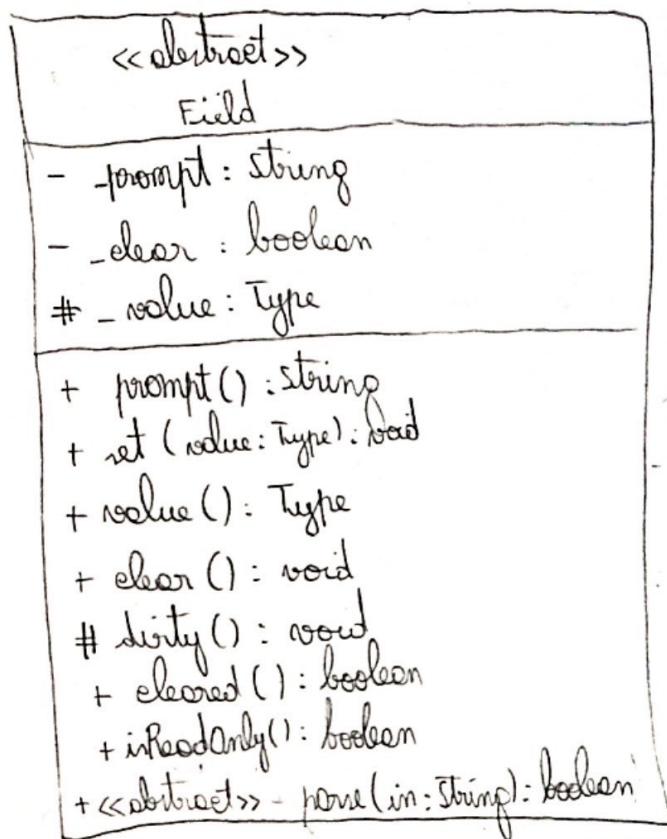 <<abstract>>
Field
- _prompt : string
- _clear : boolean
# _value : Type
+ prompt() : string
+ set (value : Type) : void
+ value() : Type
+ clear() : void
# dirty() : void
+ cleared() : boolean
+ isReadOnly() : boolean
+ <<abstract>> - parse(in : String) : boolean